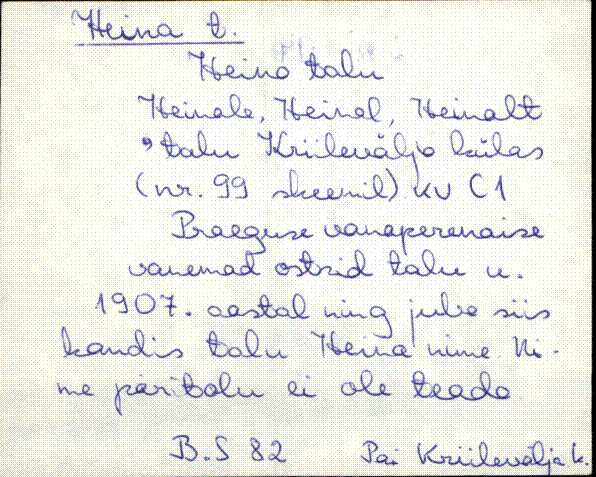 Heina t.
Heina talu
Heinale, Heinal, Heinalt
, talu Kriilevälja külas
(nr. 99 skeemil) KV C1
Praeguse vanaperenaise
vanemad ostsid talu u.
1907. aastal ning juba siis
kandis talu Heina nime. Ni-
me päritolu ei ole teada
B.S 82 Pai Kriilevälja k.